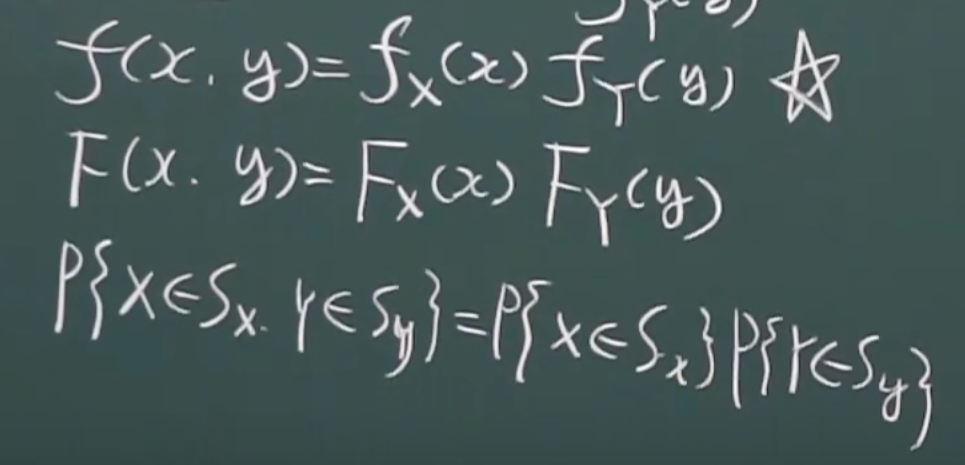 f(x, y) = f_X(x) f_Y(y) ☆
F(x, y) = F_X(x) F_Y(y)
P{X∈S_x, Y∈S_y} = P{X∈S_x} P{Y∈S_y}